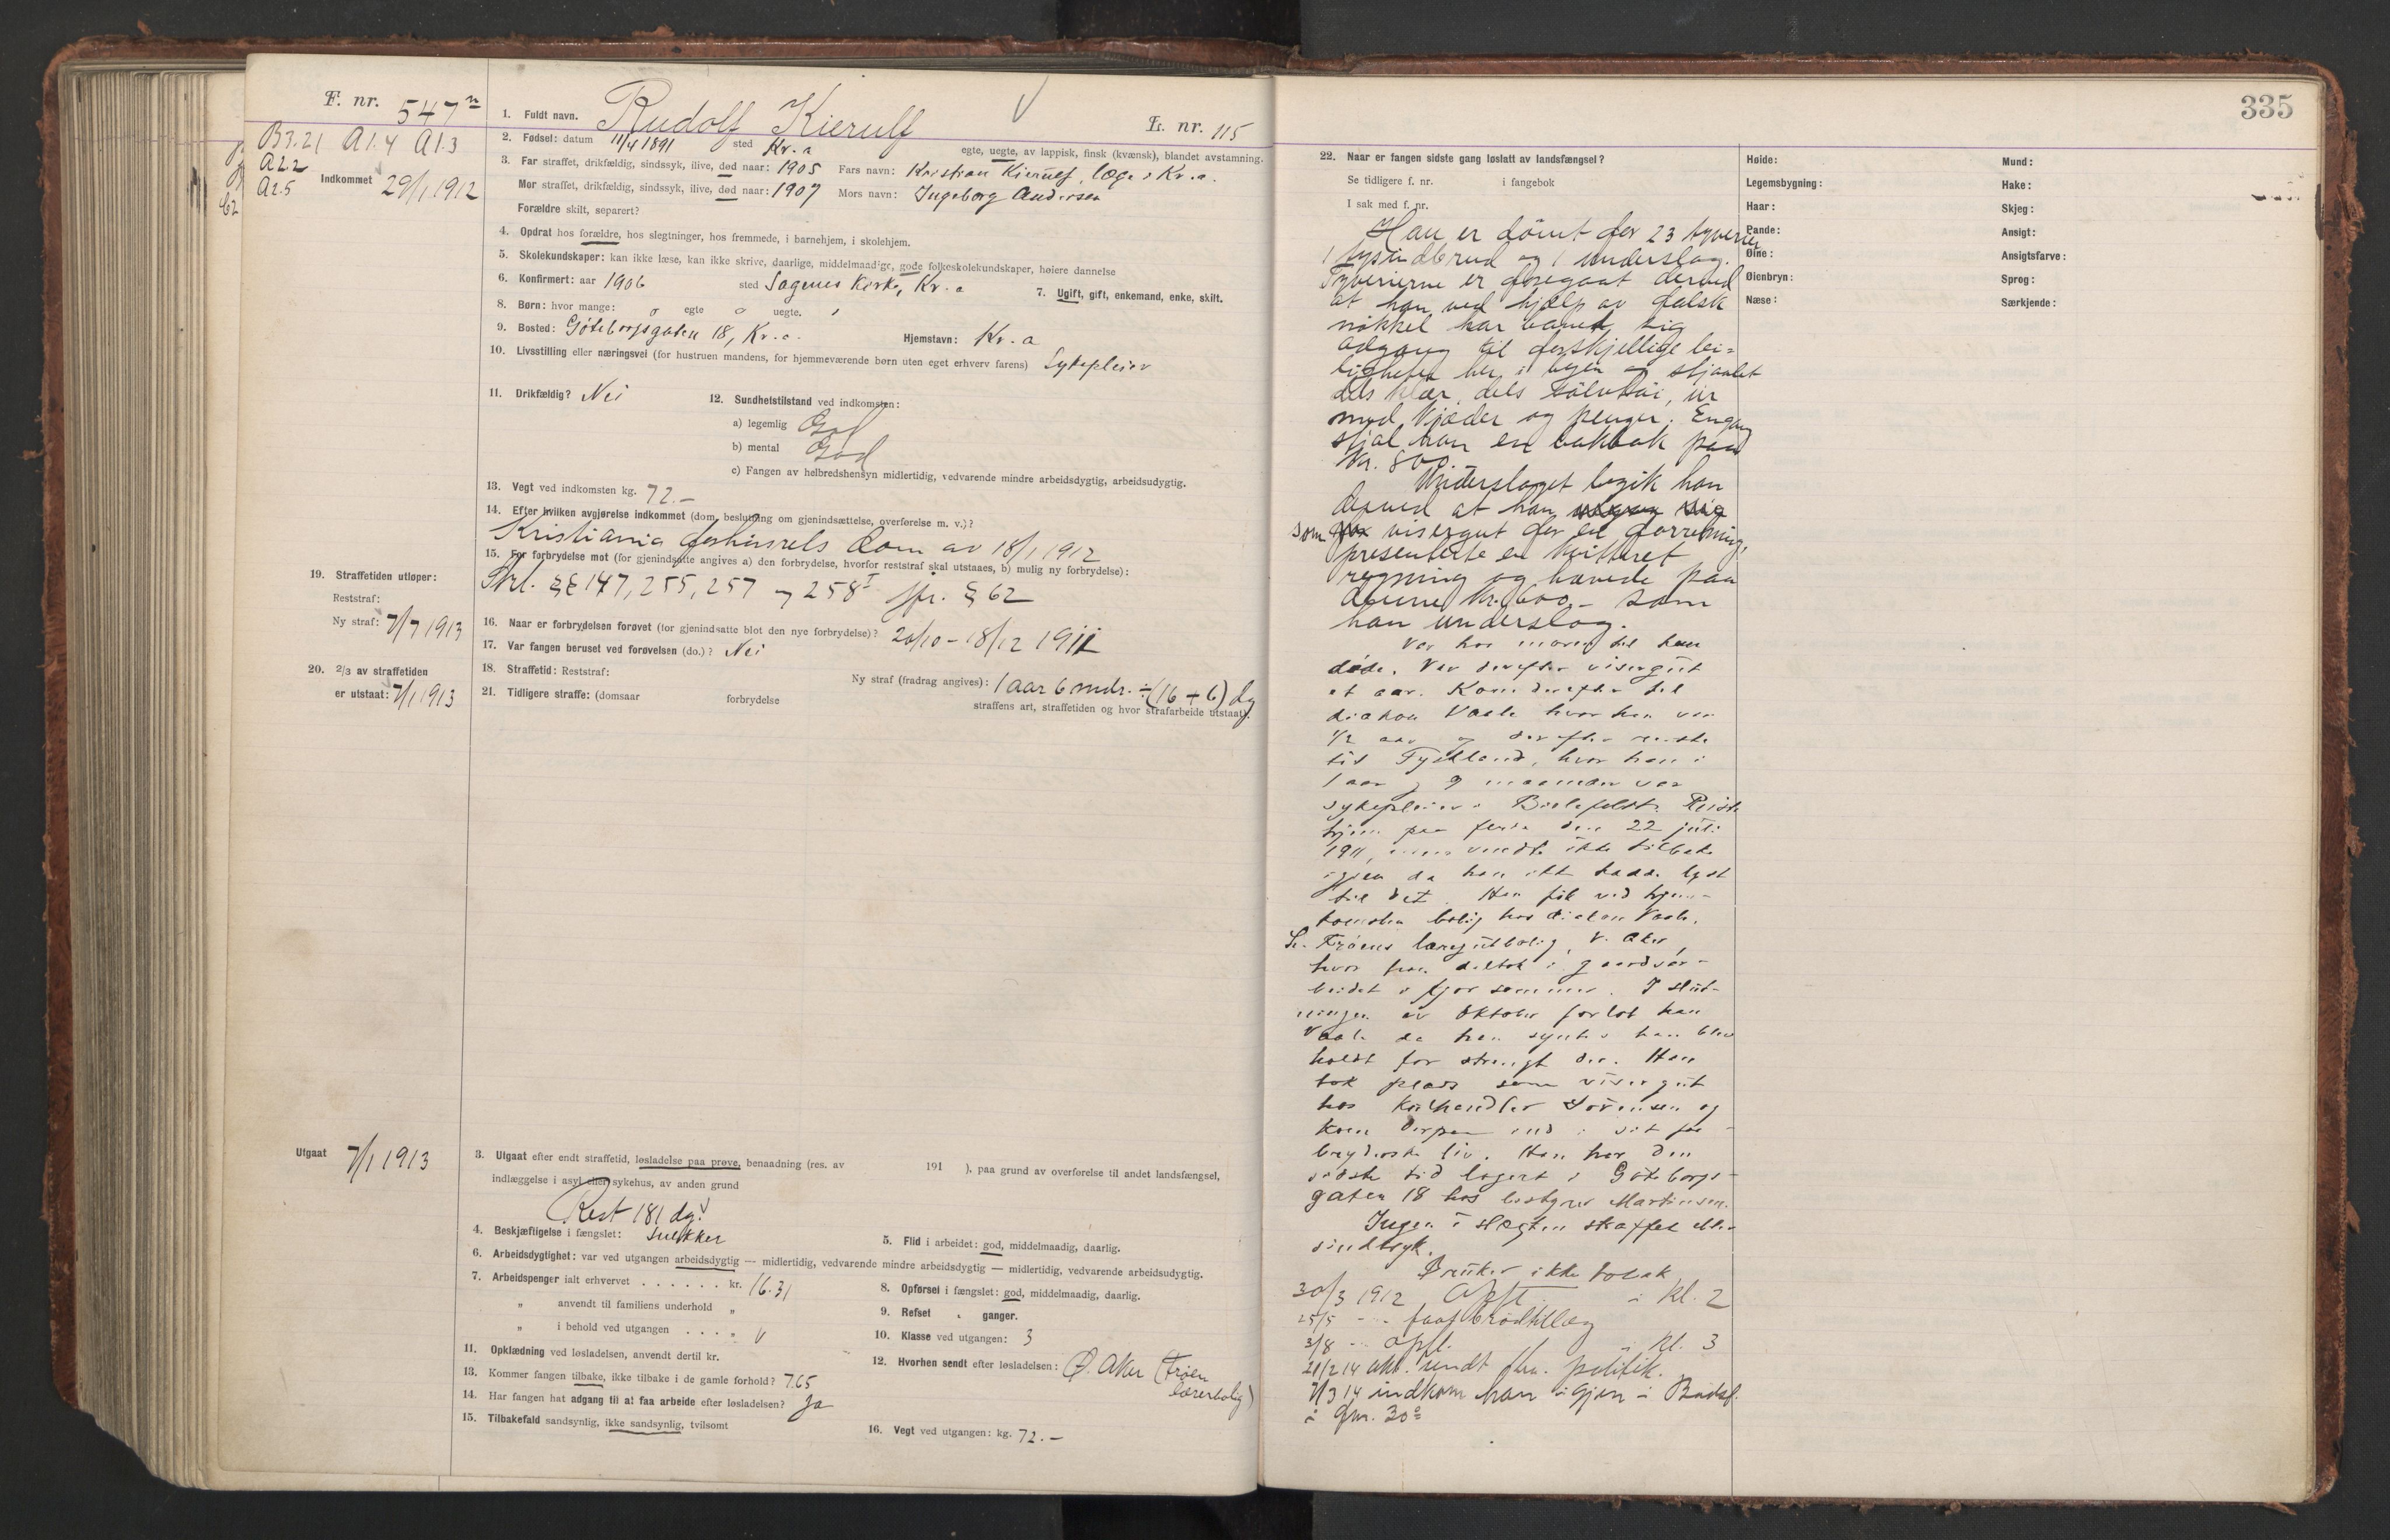 F. nr. 547 n
B3.21 A1.4 A1.3
A2.2
A2.5
Indkommet 29/1 1912
1. Fuldt navn. Rudolf Kierulf
L. nr. 115
2. Fødsel: datum 11/4 1891 sted Kr.a egte, uegte, av lappisk, finsk (kvænsk), blandet avstamning.
3. Far straffet, drikfældig, sindssyk, ilive, død naar: 1905 Fars navn: Kristian Kierulf, læge i Kr.a.
Mor straffet, drikfældig, sindssyk, ilive, død naar: 1907 Mors navn: Ingeborg Andersen
Forældre skilt, separert?
4. Opdrat hos forældre, hos slegtninger, hos fremmede, i barnehjem, i skolehjem.
5. Skolekundskaper: kan ikke læse, kan ikke skrive, daarlige, middelmaadige, gode folkeskolekundskaper, høiere dannelse
6. Konfirmert: aar 1906 sted Sagenes Kirke, Kr.a 7. Ugift, gift, enkemand, enke, skilt.
8. Børn: hvor mange: 0 egte uegte.
9. Bosted: Göteborgsgaten 18, Kr.a. Hjemstavn: Kr.a
10. Livsstilling eller næringsvei (for hustruen mandens, for hjemmeværende børn uten eget erhverv farens) Sykepleier
11. Drikfældig? Nei 12. Sundhetstilstand ved indkomsten:
a) legemlig God
b) mental God
c) Fangen av helbredshensyn midlertidig, vedvarende mindre arbeidsdygtig, arbeidsudygtig.
13. Vegt ved indkomsten kg. 72.-
14. Efter hvilken avgjørelse indkommet (dom, beslutning om gjenindsættelse, overførelse m. v.)?
Kristiania forhørsrets dom av 18/1 1912
15. For forbrydelse mot (for gjenindsatte angives a) den forbrydelse, hvorfor reststraf skal utstaaes, b) mulig ny forbrydelse):
Strl. §§ 147, 255, 257 og 258 I jfr. § 62
19. Straffetiden utløper:
Reststraf:
Ny straf: 7/7 1913
16. Naar er forbrydelsen forøvet (for gjenindsatte blot den nye forbrydelse)? 20/10 - 18/12 1911
17. Var fangen beruset ved forøvelsen (do.)? Nei
20. 2/3 av straffetiden
er utstaat: 7/1 1913
18. Straffetid: Reststraf: Ny straf (fradrag angives): 1 aar 6 mdr. ÷ (16 + 6) dg
21. Tidligere straffe: (domsaar forbrydelse straffens art, straffetiden og hvor strafarbeide utstaat).
Utgaat 7/1 1913
3. Utgaat efter endt straffetid, løsladelse paa prøve, benaadning (res. av 191 ), paa grund av overførelse til andet landsfængsel,
indlæggelse i asyl eller sykehus, av anden grund
Rest 181 dg.
4. Beskjæftigelse i fængslet: snekker 5. Flid i arbeidet: god, middelmaadig, daarlig.
6. Arbeidsdygtighet: var ved utgangen arbeidsdygtig — midlertidig, vedvarende mindre arbeidsdygtig — midlertidig, vedvarende arbeidsudygtig.
7. Arbeidspenger ialt erhvervet . . . . . . kr. 16.31 8. Opførsel i fængslet: god, middelmaadig, daarlig.
„ anvendt til familiens underhold „ 9. Refset ganger.
„ i behold ved utgangen . . . „ 10. Klasse ved utgangen: 3
11. Opklædning ved løsladelsen, anvendt dertil kr. 12. Hvorhen sendt efter løsladelsen: Ø. Aker (Frøen
lærerbolig)
13. Kommer fangen tilbake, ikke tilbake i de gamle forhold? 7.65
14. Har fangen hat adgang til at faa arbeide efter løsladelsen? Ja
15. Tilbakefald sandsynlig, ikke sandsynlig, tvilsomt 16. Vegt ved utgangen: kg. 72.-
335
22. Naar er fangen sidste gang løslatt av landsfængsel?
Se tidligere f. nr. i fangebok
I sak med f. nr.
Høide: Mund:
Legemsbygning: Hake:
Haar: Skjeg:
Pande: Ansigt:
Øine: Ansigtsfarve:
Øienbryn: Sprog:
Næse: Særkjende:
Han er dömt for 23 tyverier
1 og 1 underslag.
Tyverierne er foregaat derved
at han ved hjælp av falsk
nökkel har banet sig
adgang til forskjellige lei=
ligheter her i byen og stjaalet
dels klær, dels sölvtöi, ur
med kjæder og penger. Engang
stjal han en bankbok paa
Kr. 800.
Underslaget begik han
derved at han
som visergut for en forretning,
presenterte en kvitteret
regning og hævede paa
denne kr. 600.- som
han underslog.
Var hos moren til hun
døde. Var derefter visergut
et aar. Kom derefter til
diakon Vaale hvor han var
1/2 aar og derefter reiste
til Tyskland, hvor han i
1 aar og 9 maaneder var
sykepleier i Bielefeldt. Reiste
hjem paa ferie den 22 juli
1911, men vendte ikke tilbake
igjen da han ikke hadde lyst
til det. Han fik ved hjem-
komsten bolig hos diakon Vaale,
St. Frøens læregutbolig, V. Aker,
hvor han deltok i gaardsar-
beidet i fjor sommer. I slut-
ningen av Oktober forlot han
Vaale da han syntes han blev
holdt for strengt der. Han
tok plads som visergut
hos Kulhandler Sørensen og
kom derpaa ind i sit for-
bryderske liv. Han har den
sidste tid logert i Göteborgs-
gaten 18 hos bestyrer Martinsen.
Ingen i slegten straffet eller
sindssyk.
Bruker ikke tobak
30/3 1912 Opfl. i kl. 2
25/5 - faat brödtillæg
3/8 - opfl. i kl. 3
21/2 14 akt. sendt Kra. politik.
7/3 14 indkom han igjen i Bodsf.
i fnr. 30